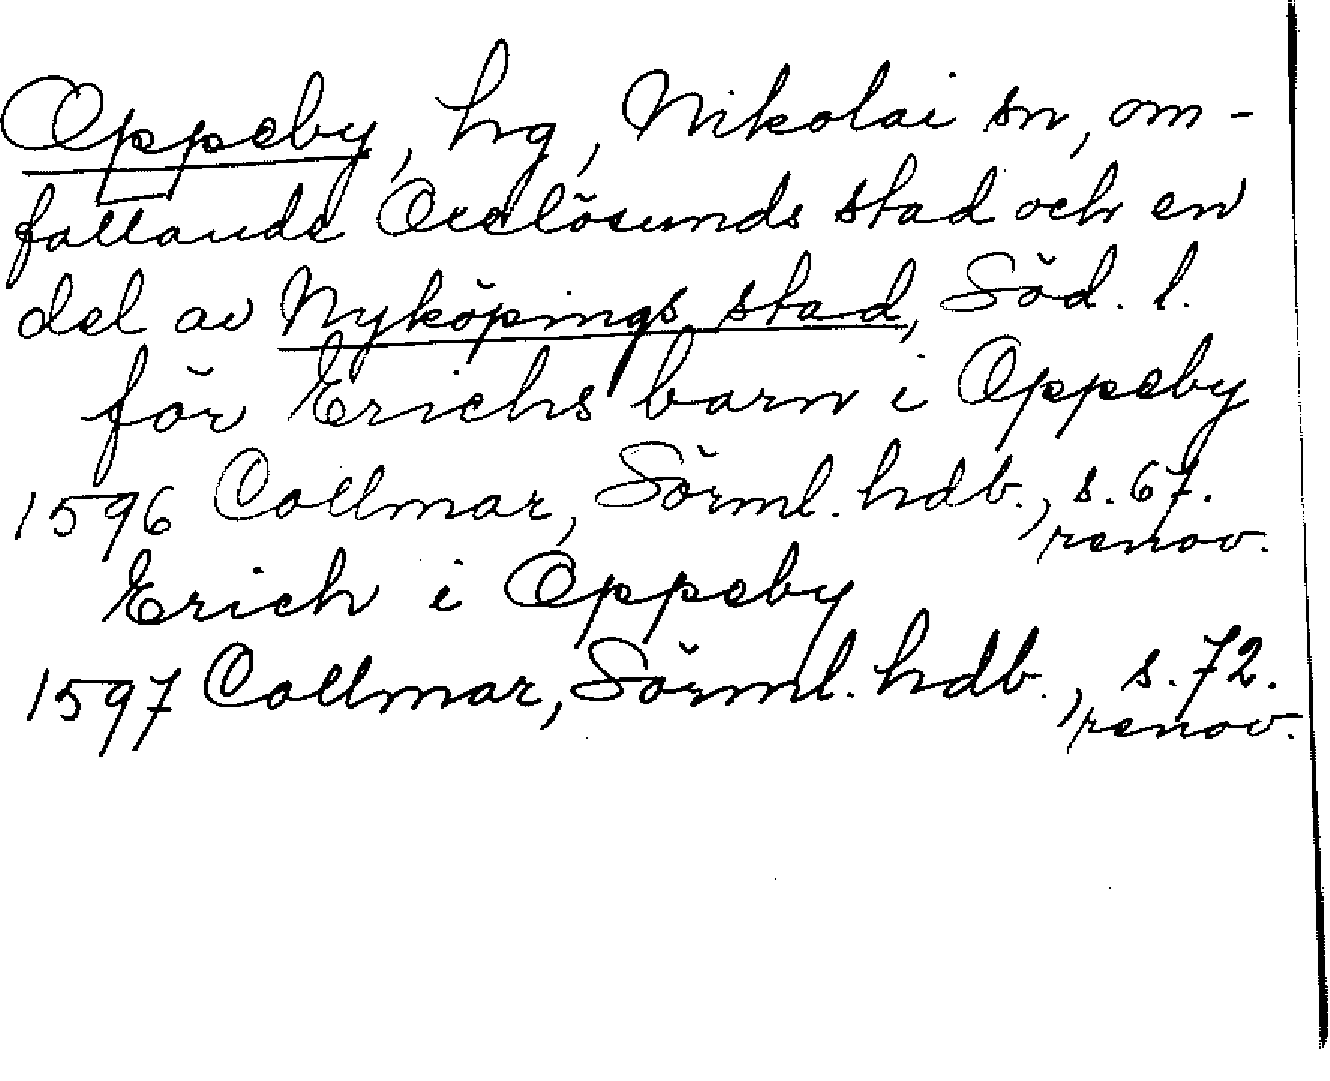 Oppeby, hg, Nikolai sn, om-
fattande Oxelösunds stad och en
del av Nyköpings stad, Söd. l.
för Erichs barn i Oppeby
1596 Collmar, Sörml. hdb., s. 67.
renov.
Erich i Oppeby
1597 Collmar, Sörml. hdb., s. 72.
renov.